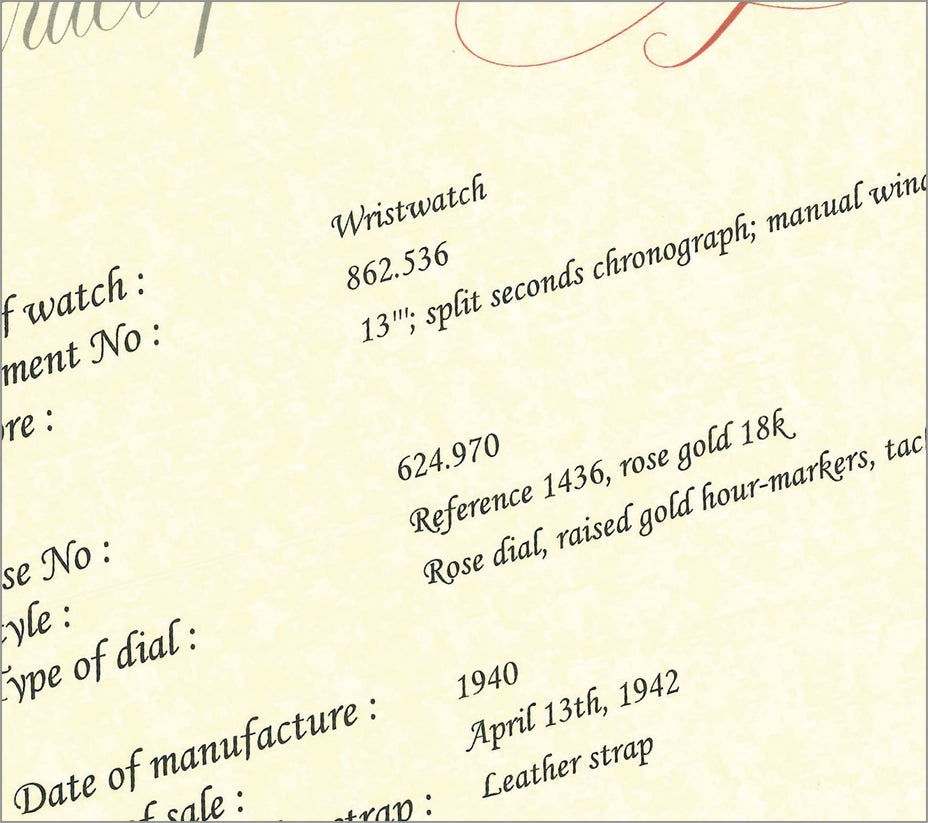 Wristwatch
f watch : 862.536
ment No : 13'''; split seconds chronograph; manual wind
re :
624.970
Reference 1436, rose gold 18k
se No : Rose dial, raised gold hour-markers, tac
yle :
Type of dial :
1940
Date of manufacture : April 13th, 1942
f sale : Leather strap
strap :